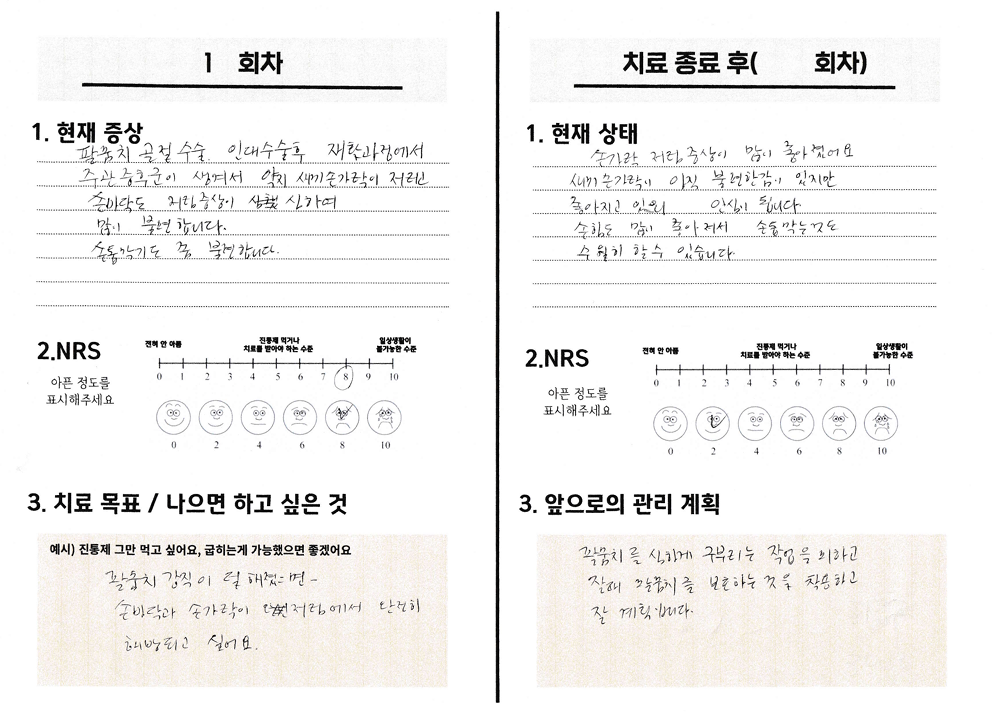 1 회차
1. 현재 증상
팔꿈치 골절 수술. 인대수술후 재활과정에서
주관증후군이 생겨서 약지 새끼손가락이 저리고
손바닥도 저림증상이 심하여
많이 불편합니다.
손톱깎기도 좀 불편합니다.
2.NRS
아픈 정도를
표시해주세요
전혀 안 아픔
진통제 먹거나
치료를 받아야 하는 수준
일상생활이
불가능한 수준
0 1 2 3 4 5 6 7 8 9 10
0 2 4 6 8 10
3. 치료 목표 / 나으면 하고 싶은 것
예시) 진통제 그만 먹고 싶어요, 굽히는게 가능했으면 좋겠어요
팔꿈치 강직이 덜 해졌으면-
손바닥과 손가락이 저림에서 완전히
해방되고 싶어요.
치료 종료 후( 회차)
1. 현재 상태
손가락 저림증상이 많이 좋아졌어요
새끼손가락이 아직 불편한감이 있지만
좋아지고 있어 안심이 됩니다
손힘도 많이 좋아져서 손톱깎는것도
수월히 할수 있습니다.
2.NRS
아픈 정도를
표시해주세요
전혀 안 아픔
진통제 먹거나
치료를 받아야 하는 수준
일상생활이
불가능한 수준
0 1 2 3 4 5 6 7 8 9 10
0 2 4 6 8 10
3. 앞으로의 관리 계획
팔꿈치를 심하게 구부리는 작업을 피하고
팔꿈치를 보호하는 것을 착용하고
잘 계획입니다.